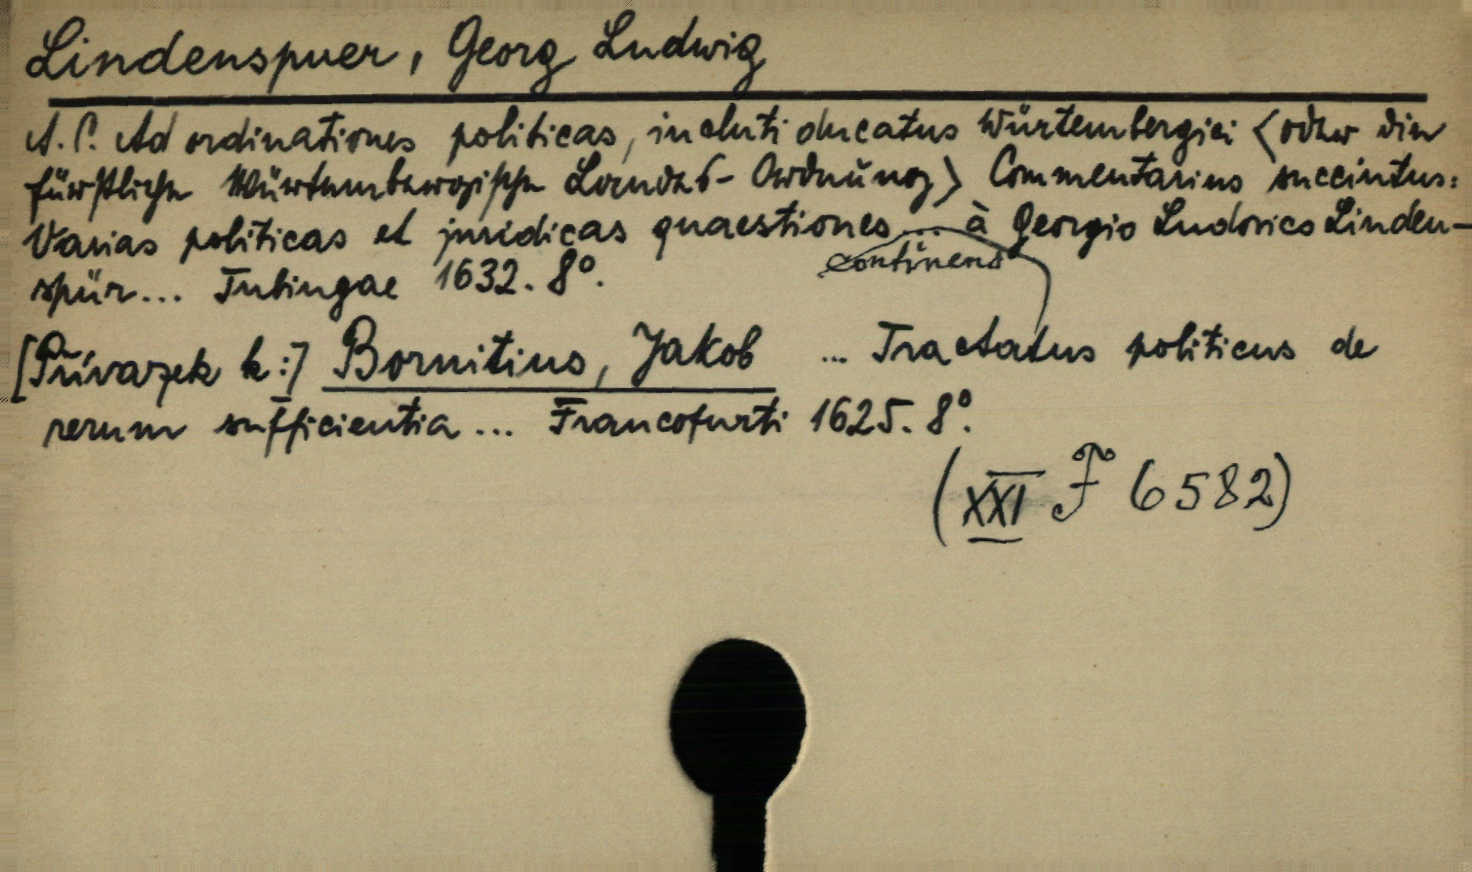 Lindenspuer, Georg Ludwig
A. C. Ad ordinationes politicas, incluti ducatus Würtembergici <oder die
fürstliche Würtembergische Landes-Ordnŭng> Commentarius succintus:
Varias politicas et juridicas quaestiones ... à Georgio Ludovico Linden-
continens
spür... Tubingae 1632. 8°.
[Přívazek k:] Bornitius, Jakob ... Tractatus politicus de
rerum sufficientia ... Francofurti 1625. 8°.
(XXI F 6582)